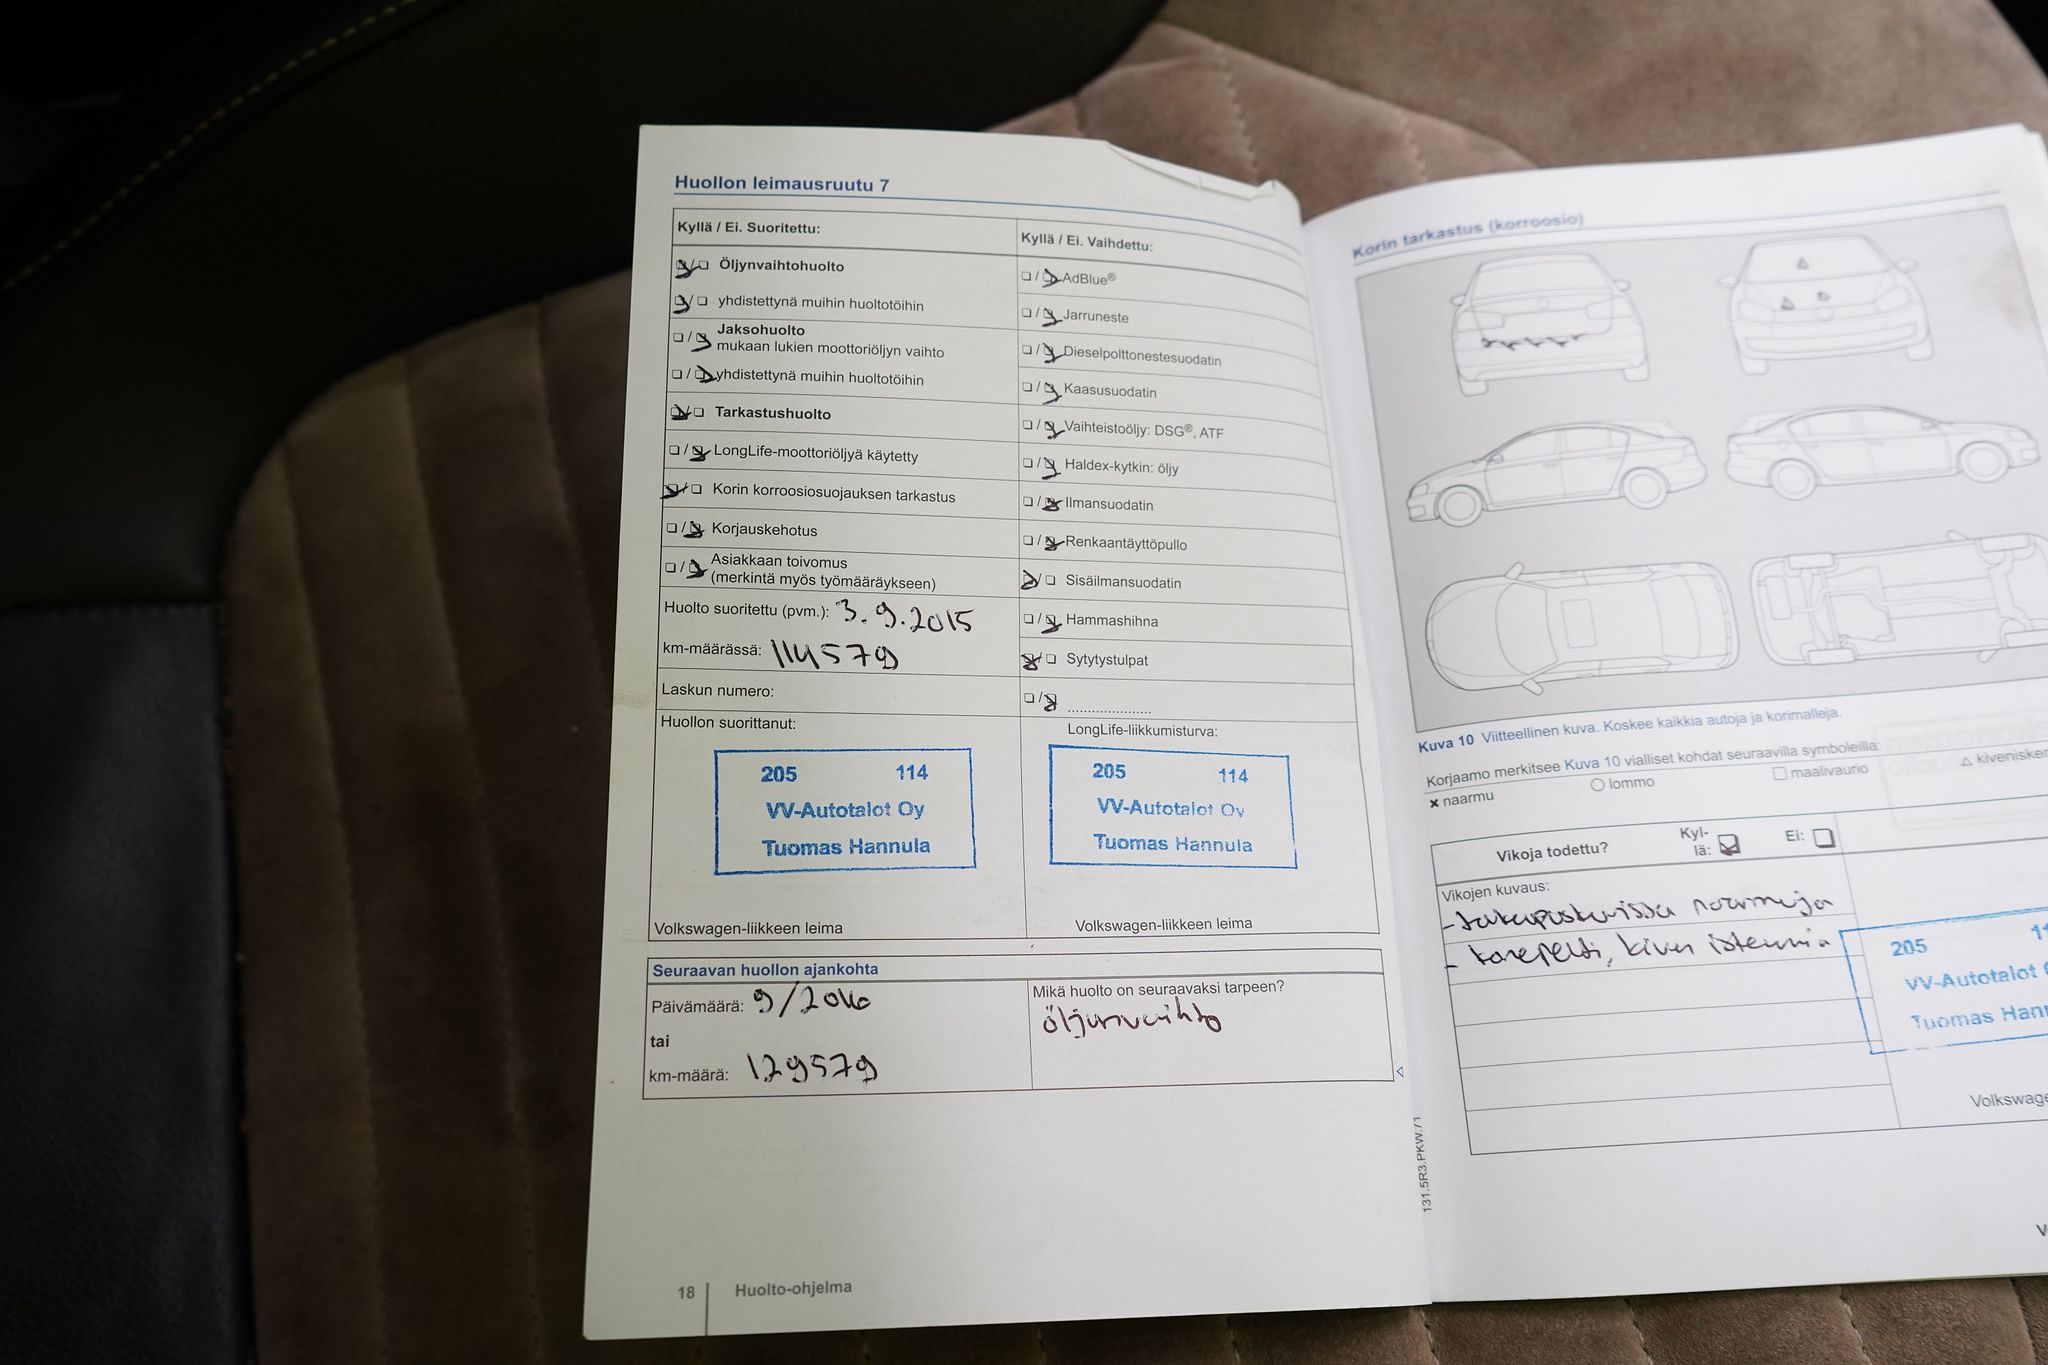 Huollon leimausruutu 7
Kyllä / Ei. Suoritettu:
Öljynvaihtohuolto
yhdistettynä muihin huoltotöihin
Jaksohuolto
mukaan lukien moottoriöljyn vaihto
yhdistettynä muihin huoltotöihin
Tarkastushuolto
LongLife-moottoriöljyä käytetty
Korin korroosiosuojauksen tarkastus
Korjauskehotus
Asiakkaan toivomus
(merkintä myös työmääräykseen)
Huolto suoritettu (pvm.): 3.9.2015
km-määrässä: 114579
Laskun numero:
Huollon suorittanut:
205 114
VV-Autotalot Oy
Tuomas Hannula
Volkswagen-liikkeen leima
Kyllä / Ei. Vaihdettu:
AdBlue®
Jarruneste
Dieselpolttonestesuodatin
Kaasusuodatin
Vaihteistoöljy: DSG®, ATF
Haldex-kytkin: öljy
Ilmansuodatin
Renkaantäyttöpullo
Sisäilmansuodatin
Hammashihna
Sytytystulpat
.....................
LongLife-liikkumisturva:
205 114
VV-Autotalot Oy
Tuomas Hannula
Volkswagen-liikkeen leima
Seuraavan huollon ajankohta
Päivämäärä: 9/2016
tai
km-määrä: 129579
Mikä huolto on seuraavaksi tarpeen?
öljynvaihto
18 Huolto-ohjelma
Korin tarkastus (korroosio)
Kuva 10 Viitteellinen kuva. Koskee kaikkia autoja ja korimalleja.
Korjaamo merkitsee Kuva 10 vialliset kohdat seuraavilla symboleilla:
naarmu lommo maalivaurio
Vikoja todettu? Kyl-
lä: Ei:
Vikojen kuvaus:
- takapuskurissa naarmuja
- konepelti, kiven iskemiä
205
VV-Autotalot
Tuomas
131.5R3.PKW.71